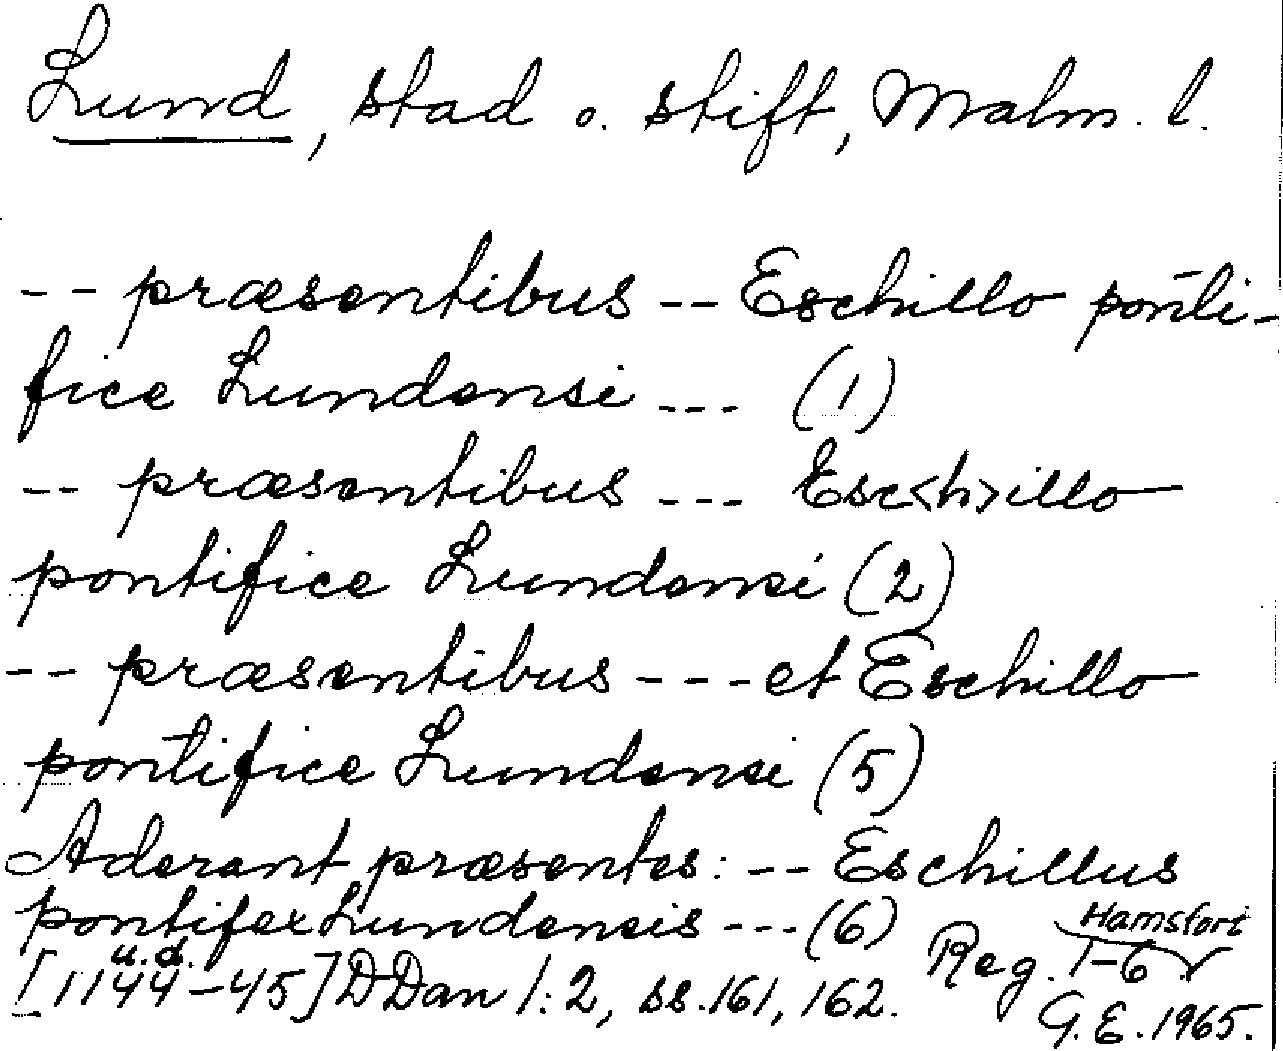 Lund, stad o. stift, Malm. l.
-- præsentibus -- Eschillo ponti-
fice Lundensi --- (1)
-- præsentibus --- Esc<h>illo
pontifice Lundensi (2)
-- præsentibus --- et Eschillo
pontifice Lundensi (5)
Aderant præsentes: -- Eschillus
pontifex Lundensis --- (6)
Hamsfort
u.d.
[1144-45] DDan 1:2, ss. 161, 162. Reg. 1-6
G.E. 1965.